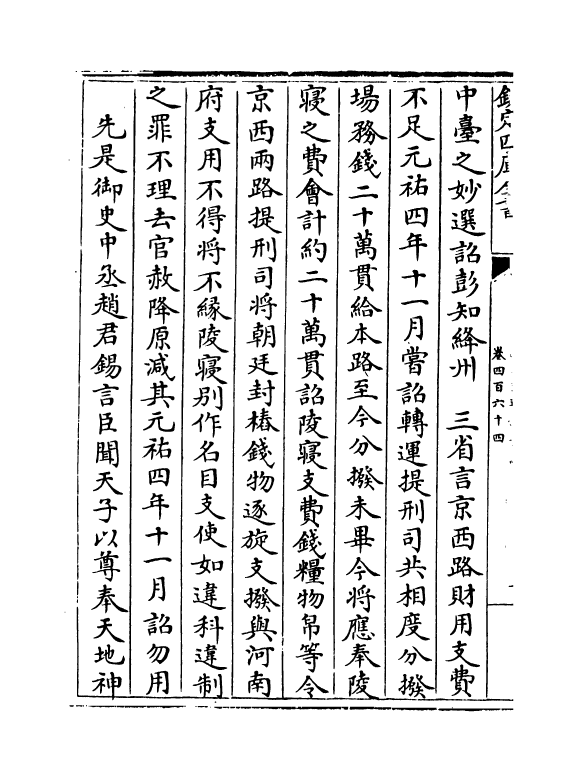 欽定四庫全書
卷四百六十四
中臺之妙選詔彭知絳州　三省言京西路財用支費
不足元祐四年十一月嘗詔轉運提刑司共相度分撥
場務錢二十萬貫給本路至今分撥未畢今將應奉陵
寢之費會計約二十萬貫詔陵寢支費錢糧物帛等令
京西兩路提刑司將朝廷封樁錢物逐旋支撥與河南
府支用不得將不緣陵寢別作名目支使如違科違制
之罪不理去官赦降原減其元祐四年十一月詔勿用
先是御史中丞趙君錫言臣聞天子以尊奉天地神